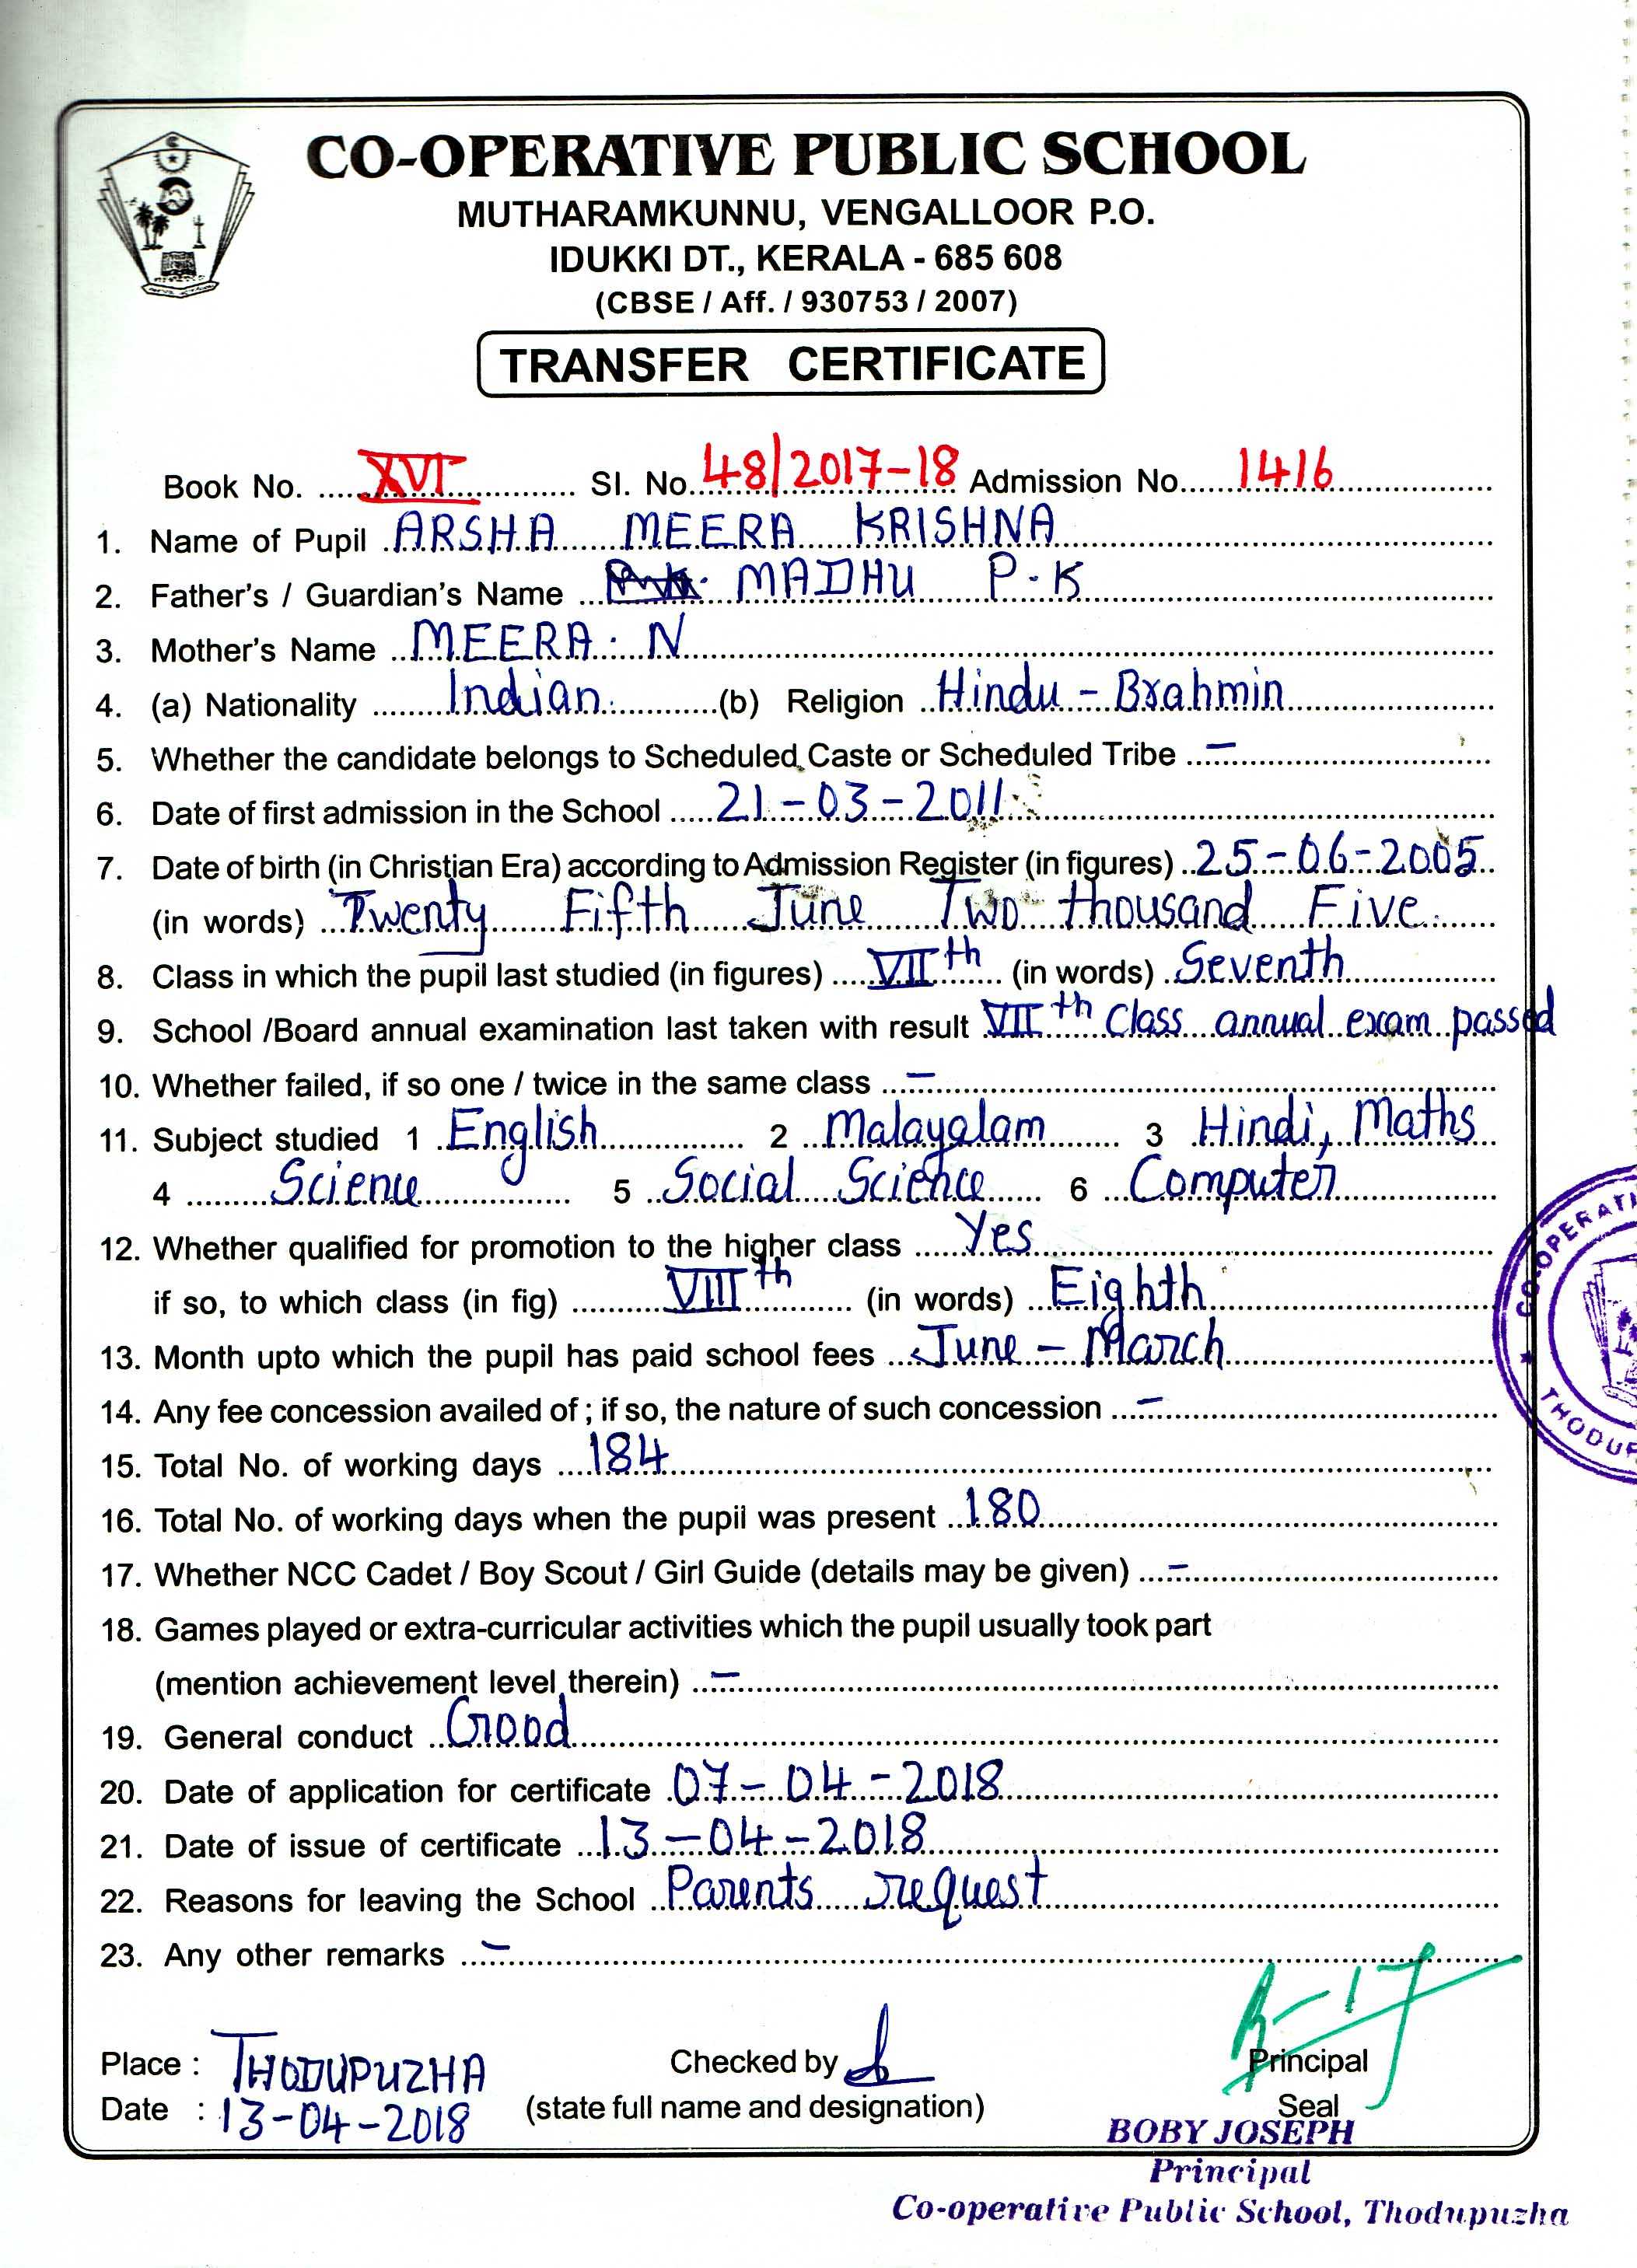 CO-OPERATIVE PUBLIC SCHOOL
MUTHARAMKUNNU, VENGALLOOR P.O.
IDUKKI DT., KERALA - 685 608
(CBSE / Aff. / 930753 / 2007)
TRANSFER CERTIFICATE
Book No. XVI Sl. No. 48/2017-18 Admission No. 1416
1. Name of Pupil ARSHA MEERA KRISHNA
2. Father's / Guardian's Name MADHU P.K
3. Mother's Name MEERA. N
4. (a) Nationality Indian. (b) Religion Hindu - Brahmin
5. Whether the candidate belongs to Scheduled Caste or Scheduled Tribe -
6. Date of first admission in the School 21-03-2011
7. Date of birth (in Christian Era) according to Admission Register (in figures) 25-06-2005
(in words) Twenty Fifth June Two thousand Five.
8. Class in which the pupil last studied (in figures) VIIth (in words) Seventh
9. School /Board annual examination last taken with result VIIth Class annual exam passed
10. Whether failed, if so one / twice in the same class -
11. Subject studied 1 English 2 Malayalam 3 Hindi, Maths
4 Science 5 Social Science 6 Computer
12. Whether qualified for promotion to the higher class Yes
if so, to which class (in fig) VIIIth (in words) Eighth
13. Month upto which the pupil has paid school fees June - March
14. Any fee concession availed of ; if so, the nature of such concession -
15. Total No. of working days 184
16. Total No. of working days when the pupil was present 180
17. Whether NCC Cadet / Boy Scout / Girl Guide (details may be given) -
18. Games played or extra-curricular activities which the pupil usually took part
(mention achievement level therein) -
19. General conduct Good
20. Date of application for certificate 07-04-2018
21. Date of issue of certificate 13-04-2018
22. Reasons for leaving the School Parents request
23. Any other remarks -
Place : THODUPUZHA Checked by Principal
Date : 13-04-2018 (state full name and designation) Seal
BOBY JOSEPH
Principal
Co-operative Public School, Thodupuzha
CO-OPERATI
THODUP